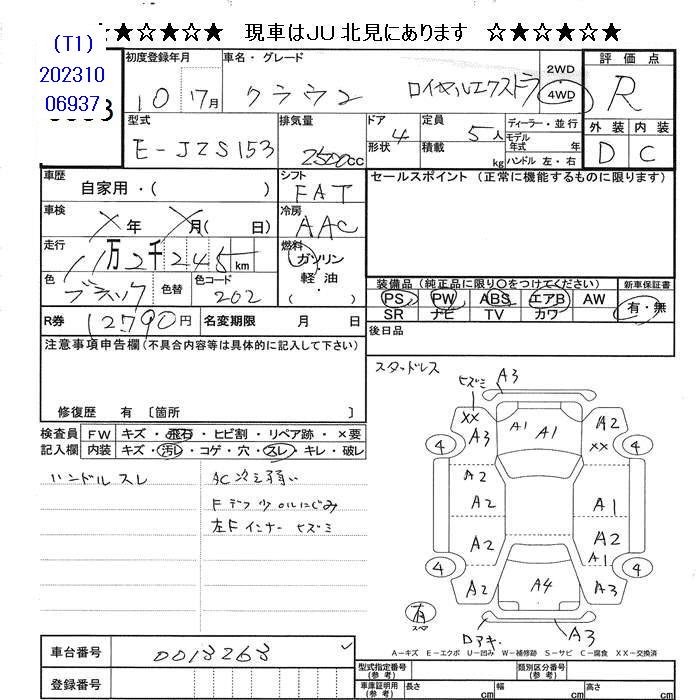 ☆★☆★☆ 現車はJU北見にあります ☆★☆★☆
(T1)
202310
06937
初度登録年月 車名・グレード 評価点
10 年 7月 クラウン ロイヤルエクストラ 2WD 4WD R
型式 排気量 ドア 定員 ディーラー・並行 外装 内装
E-JZS153 2500cc 4 形状 5人 積載 kg モデル年式 年式 ハンドル 左・右 D C
車歴 シフト セールスポイント (正常に機能するものに限ります)
自家用・( ) FAT
車検 冷房
×年 ×月( 日) AAC
走行 燃料
11万2千245km ガソリン
色 色替 色コード 軽・油
ブラック 202 ( )
装備品 (純正品に限り○をつけてください) 新車保証書
PS PW ABS エアB AW 有・無
SR ナビ TV カワ
R券 12790円 名変期限 月 日 後日品
注意事項申告欄(不具合内容等は具体的に記入して下さい)
修復歴 有 〔箇所 〕
検査員 FW キズ・飛石・ヒビ割・リペア跡・×要
記入欄 内装 キズ・汚レ・コゲ・穴・スレ・キレ・破レ
ハンドル スレ AC冷え弱い
Fデフ少OILにじみ
左Fインナー ヒズミ
スタッドレス
ヒズミ A3
XX A3 A1 A1 A2 XX
4 4
A2
A2 A1
A2 A2
A1
4 4
A2 A4 A3
有
スペア
A3
A-キズ E-エクボ U-凹み W-補修跡 S-サビ C-腐食 XX-交換済
車台番号 0013263
登録番号
型式指定番号 (参考) 類別区分番号 (参考)
車庫証明用 (参考) 長さ cm 幅 cm 高さ cm